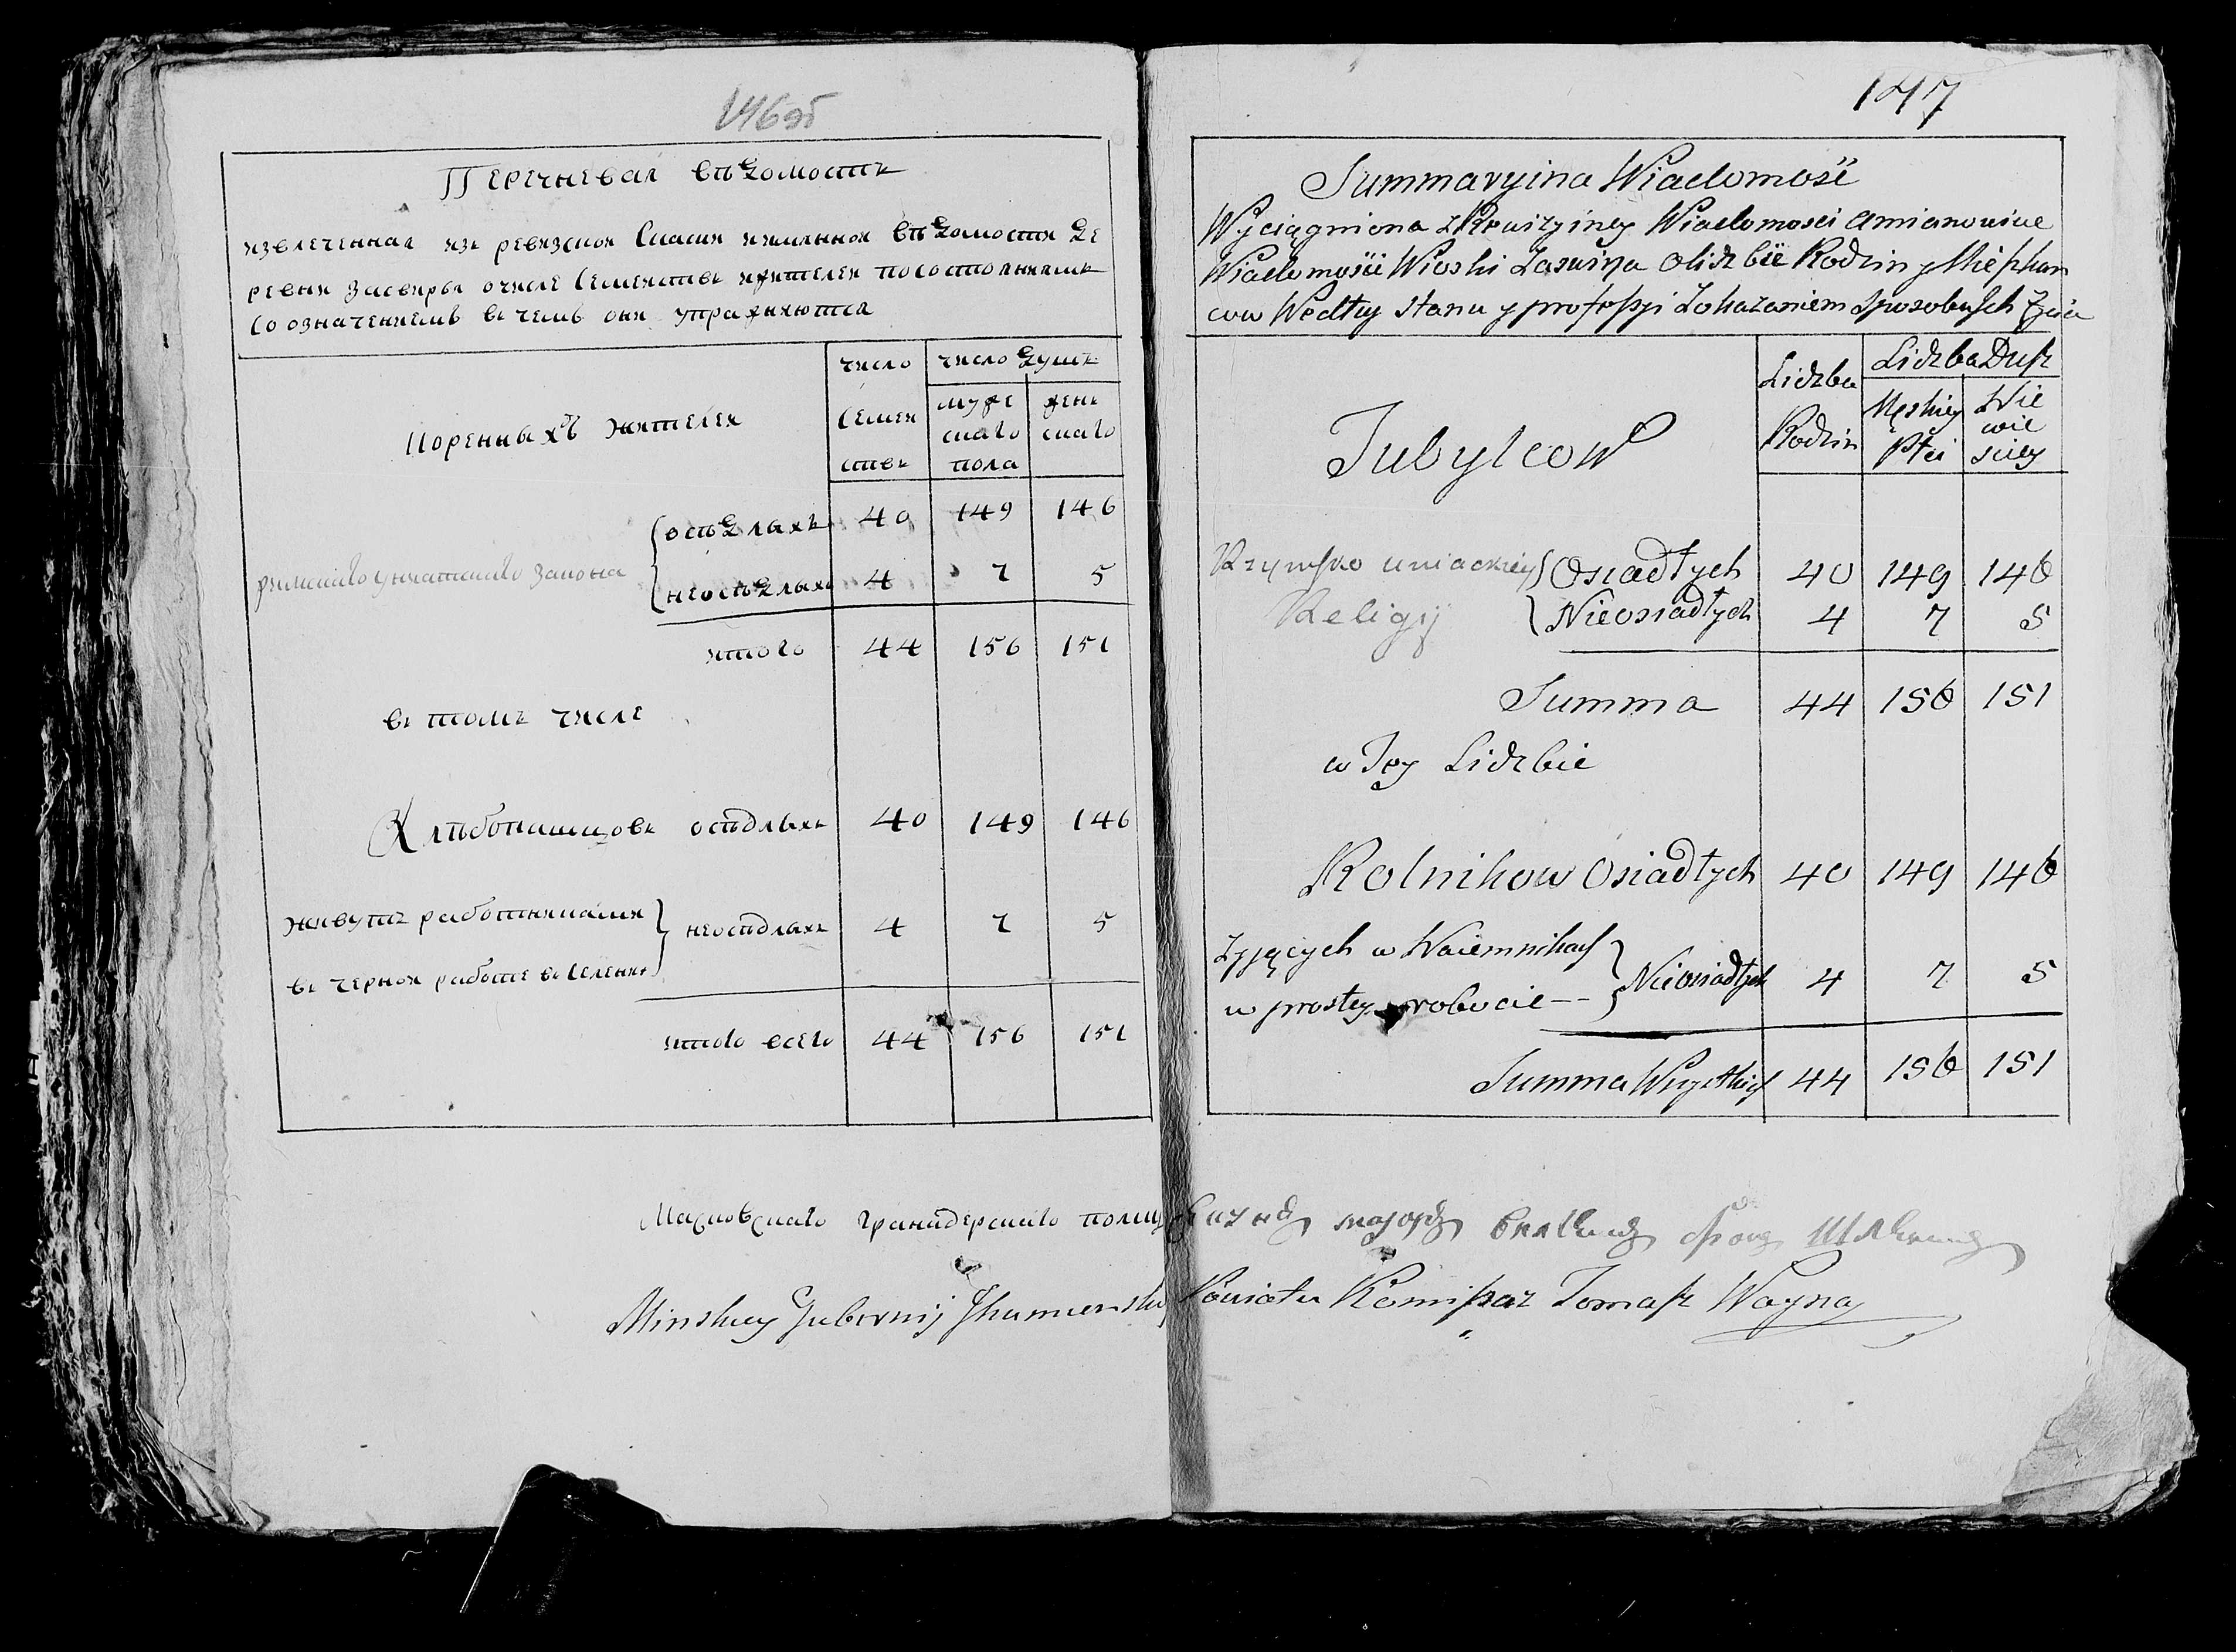 146об
Перечневая вѣдомость
извлеченная изъ ревизской Сказки имянной вѣдомости де
ревни Засвиржа о числе Семействъ и жителей по состояниямъ
со означениемъ въ чемъ они упражняются
число
Семей
ствъ
число душъ
муже
скаго
пола
жен
скаго
Коренныхъ жителей
римскаго униатскаго закона
осѣдлыхъ 40 149 146
неосѣдлыхъ 4 7 5
итого 44 156 151
въ томъ числе
Хлѣбопашцовъ осѣдлыхъ 40 149 146
живутъ работниками
въ черной работе въ Селении
неосѣдлыхъ 4 7 5
итого всего 44 156 151
147
Summaryina Wiadomość
Wyciągniona z Rewizyiney Wiadomosci a mianowicie
Wiadomości Wioski Zaswirza o liczbie Rodzin y Mieszkan
cow Według Stanu y professyi z okazaniem Sposobu Ich Życia
Liczba
Rodzin
Liczba Dusz
Męskiey
Płci
Nie
wie
sciey
Tubylcow
Rzymsko uniackiey
Religij
Osiadłych 40 149 146
Nieosiadłych 4 7 5
Summa 44 156 151
w Tey Liczbie
Rolnikow Osiadłych 40 149 146
Żyjących w Naiemnikach
w prostey robocie --
Nieosiadłych 4 7 5
Summa Wszystkich 44 156 151
Московскаго гранадерскаго полку маіоръ фонъ
Minskiey Gubernij Jhumenskiego Powiatu Komissarz Tomasz Wayna